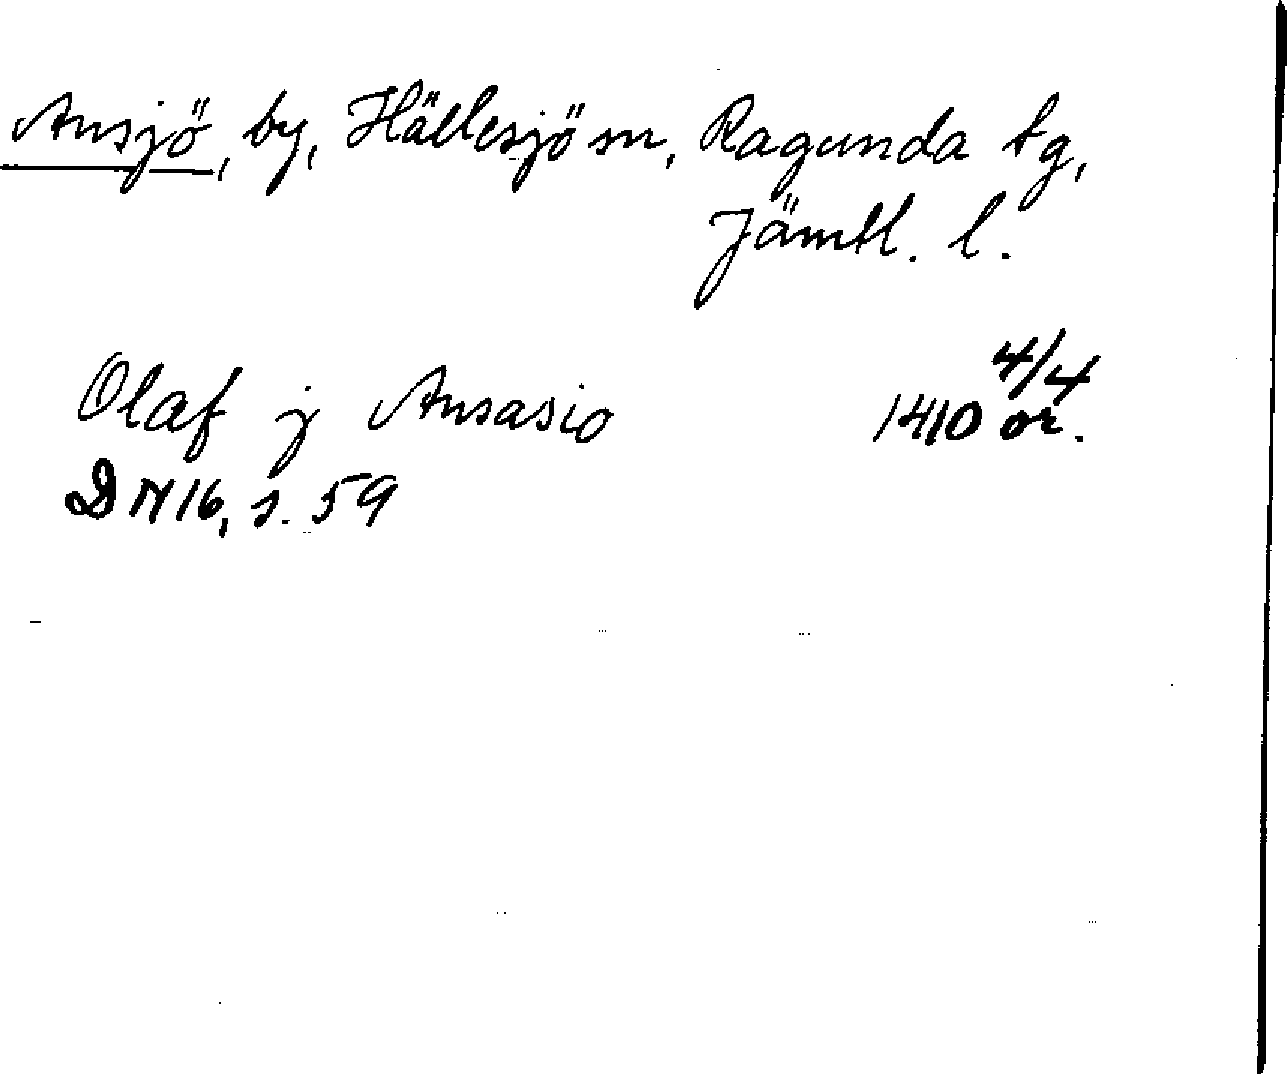 Ansjö, by, Hällesjö sn, Ragunda tg,
Jämtl. l.
Olaf j Ansasio 4/4 1410 or.
DN 16, s. 59